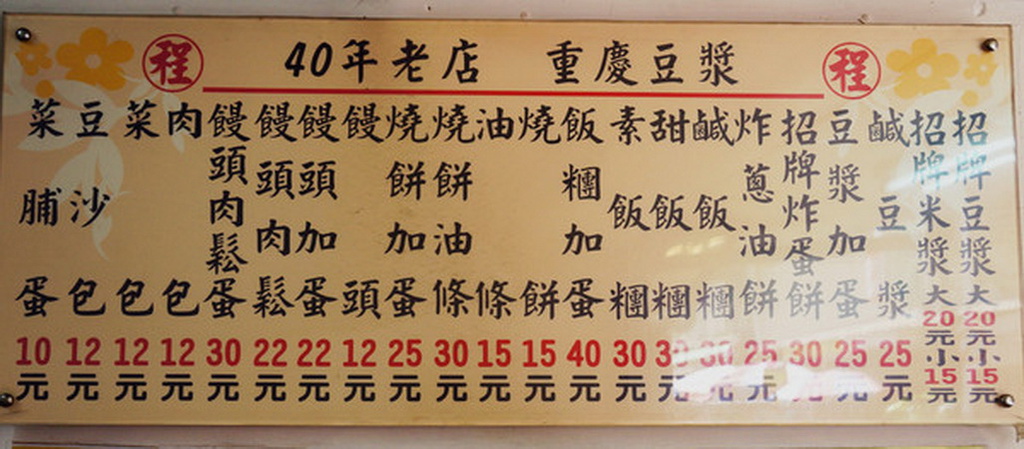 程 40年老店 重慶豆漿 程
招牌豆漿大20元小15元
招牌米漿大20元小15元
鹹豆漿25元
豆漿加蛋25元
招牌炸蛋餅30元
炸蔥油餅25元
鹹飯糰30元
甜飯糰30元
素飯糰30元
飯糰加蛋40元
燒餅15元
油條15元
燒餅油條30元
燒餅加蛋25元
饅頭12元
饅頭加蛋22元
饅頭肉鬆22元
饅頭肉鬆蛋30元
肉包12元
菜包12元
豆沙包12元
菜脯蛋10元